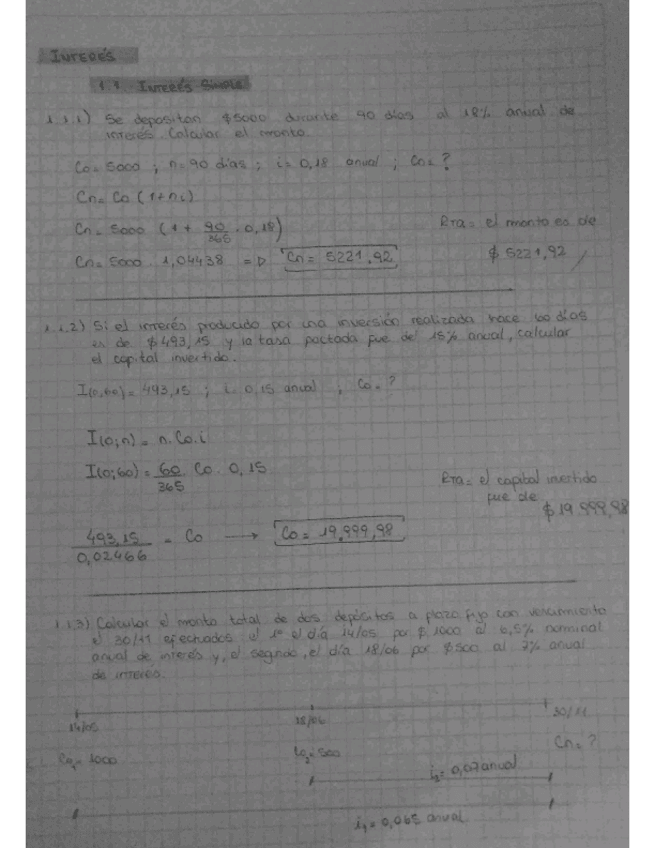 INTERÉS
1.1. INTERÉS SIMPLE
1.1.1) Se depositan $5000 durante 90 días al 18% anual de
interés. Calcular el monto.
Co = 5000 ; n = 90 días ; i = 0,18 anual ; Cn = ?
Cn = Co (1+ni)
Cn = 5000 (1 + 90/365 . 0,18)
Rta = el monto es de
Cn = 5000 . 1,04438 => Cn = 5221,92
$ 5221,92
1.1.2) Si el interés producido por una inversión realizada hace 60 días
es de $493,15 y la tasa pactada fue del 15% anual, calcular
el capital invertido.
I(0,60) = 493,15 ; i = 0,15 anual ; Co = ?
I(0;n) = n.Co.i
I(0;60) = 60/365 Co . 0,15
Rta = el capital invertido
fue de
$ 19.999,98
493,15/0,02466 = Co → Co = 19.999,98
1.1.3) Calcular el monto total de dos depósitos a plazo fijo con vencimiento
el 30/11 efectuados el 1º el día 14/05 por $1000 al 6,5% nominal
anual de interés y, el segundo, el día 18/06 por $500 al 7% anual
de interés.
14/05 18/06 30/11
Co₁ = 1000 Co₂ = 500 Cn = ?
i₂ = 0,07 anual
i₁ = 0,065 anual